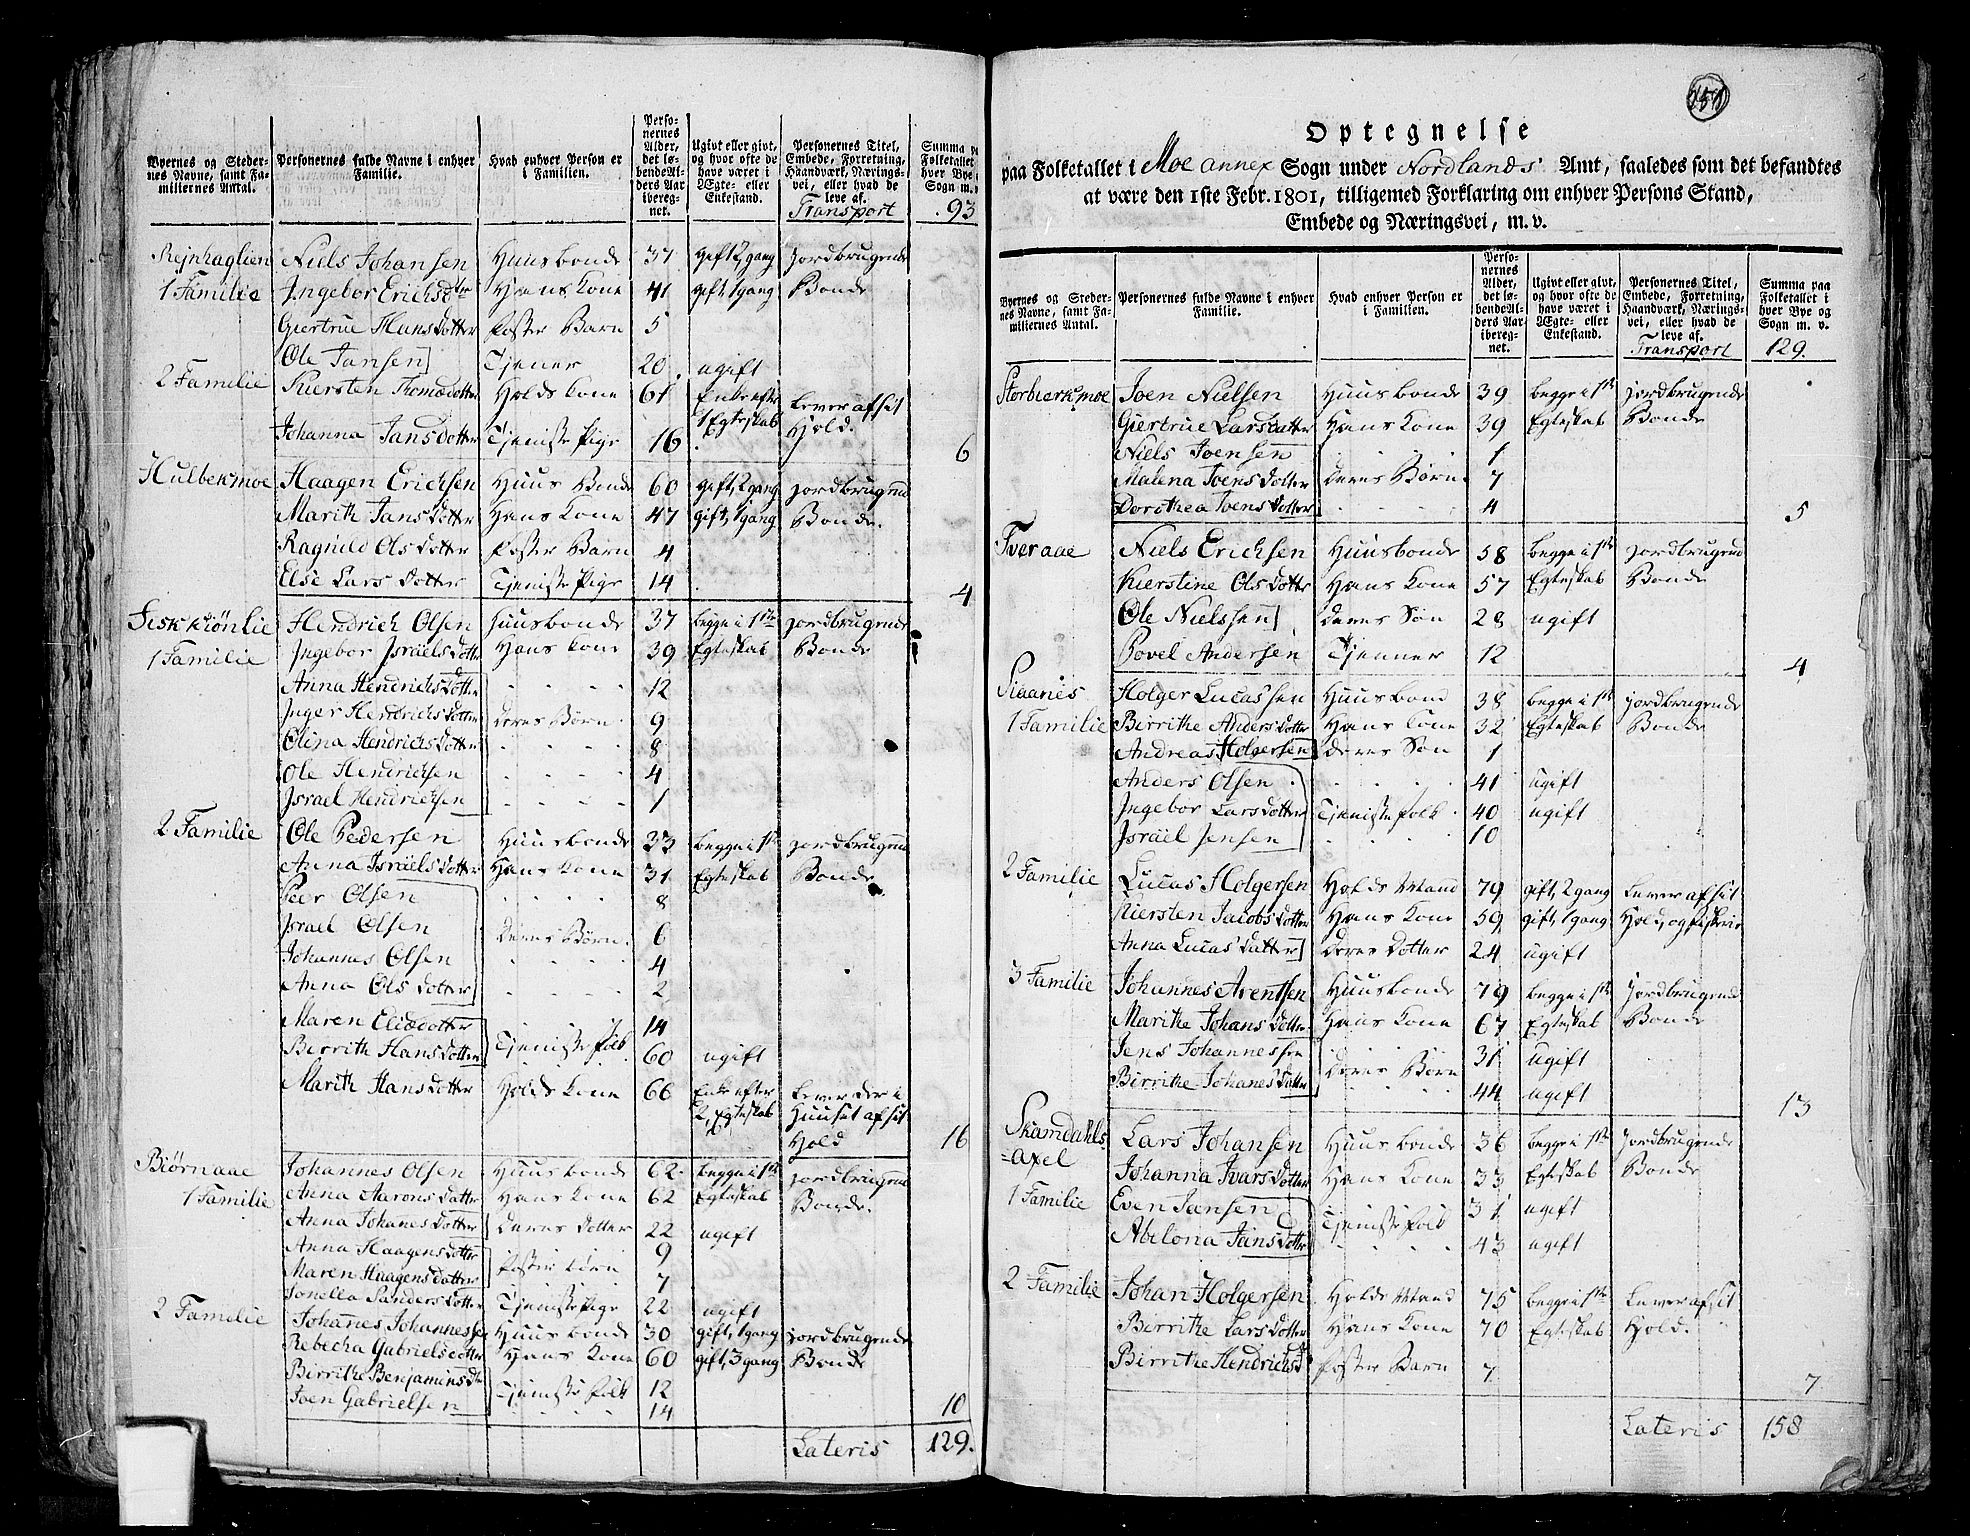 Byernes og Steder-
nes Navne, samt Fa-
miliernes Antal.
Personernes fulde Navne i enhver
Familie.
Hvad enhver Person er
i Familien.
Perso-
nernes
Alder,
det lø-
bende Al-
ders Aar
ibereg-
net.
Ugivt eller givt,
og hvor ofte de
have været i
Ægte- eller
Enkestand.
Personernes Titel,
Embede, Forretning,
Haandværk, Nærings-
vei, eller hvad de
leve af.
Summa paa
Folketallet
hver Bye
Sogn m. v.
Transport 93
Rejnhaglien Niels Johansen Huusbonde 37 gift 2 gang jordbrugende
1 Familie Ingebor Erichsdtr Hans Kone 41 gift 1 gang Bonde
Giertrue Hans Dotter foster Barn 5
Ole Jansen Tjener 20 ugift
2 Familie Kiersten Thomædotter Holds Kone 61 Enke efter Lever af sit
1 Egteskab Hold.
Johanna Jans Dotter Tjeniste Pige 16
6
Hulbekmoe Haagen Erichsen Huus Bonde 60 gift, 2 gang jordbrugend
Marith Jans Dotter Hans Kone 47 gift, 1 gang Bonde.
Ragnild Ols Dotter foster Barn 4
Else Lars Dotter Tjeniste Pige 14
4
Fiskkiønlie Hendrich Olsen Huusbonde 37 begge i 1ste jordbrugende
1 Familie Ingebor Israels Dotter Hans Kone 39 Egteskab Bonde
Anna Hendrichs Dotter 12
Inger Hendrichs Dotter Deres Børn 9
Olina Hendrichs Dotter 8
Ole Hendrichsen 4
Israel Hendrichsen 1
2 Familie Ole Pedersen Huusbonde 33 begge i 1ste jordbrugend
Anna Israels Dotter Hans Kone 31 Egteskab Bonde
Peer Olsen 8
Israel Olsen Deres Børn 6
Johannes Olsen 4
Anna Ols Dotter 2
Maren Eliædotter 14
Birrith Hans Dotter Tjeniste folk 60 ugift
Marith Hans Dotter Holds Kone 66 Enke efter Lever der i
2, Egteskab Huuset af sit
Hold
16
Biørnaae Johannes Olsen Huusbonde 62 begge i 1ste jordbrugend
1 Familie Anna Aarons Datter Hans Kone 62 Egteskab Bonde.
Anna Johanes Dotter Deres Dotter 22 ugift
Anna Haagens Dotter 9
Maren Haagens Dotter foster Børn 7
Jonella Sanders Dotter Tjeniste Pige 22 ugift
2 Familie Johañes Johannessen Huusbonde 30 gift, 1 gang jordbrugende
Rebecha Gabrielsdotter Hans Kone 60 gift, 3 gang Bonde
Birrithe Benjamins dtr Tjeniste folk 12
Joen Gabrielsen 14
10
Lateris 129.
Optegnelse
paa Folketallet i Moe annex Sogn under Nordlands Amt, saaledes som det befandtes
at være den 1ste Febr. 1801, tilligemed Forklaring om enhver Persons Stand,
Embede og Næringsvei, m. v.
Byernes og Steder-
nes Navne, samt Fa-
miliernes Antal.
Personernes fulde Navne i enhver
Familie.
Hvad enhver Person er
i Familien.
Perso-
nernes
Alder,
det lø-
bende Al-
ders Aar
ibereg-
net.
Ugivt eller givt,
og hvor ofte de
have været i
Ægte- eller
Enkestand.
Personernes Titel,
Embede, Forretning,
Haandværk, Nærings-
vei, eller hvad de
leve af.
Summa paa
Folketallet i
hver Bye og
Sogn m. v.
Transport 129.
Storbierkmoe Joen Nielsen Huusbonde 39 begge i 1ste jordbrugende
Giertrue Larsdatter Hans Kone 39 Egteskab Bonde
Niels Joensen 1
Malena Joens Dotter Deres Børn 7
Dorothea Joens Dotter 4
5
Tveraae Niels Erichsen Huusbonde 58 begge i 1ste jordbrugend
Kierstine Ols Dotter Hans Kone 57 Egteskab Bonde
Ole Nielssen Deres Søn 28 ugift
Povel Andersen Tjenner 12
4
Siaanes Holger Lucassen Huusbond 38 begge i 1ste jordbrugende
1 Familie Birrithe Anders Dotter Hans Kone 32 Egteskab Bonde
Andreas Holgersen Deres Søn 1
Anders Olsen 41 ugift
Ingebor Larsdotter Tjeniste folk 40 ugift
Israel Jensen 10
2 Familie Lucas Holgersen Holds Mand 79 gift, 2 gang Lever af sit
Kiersten Jacobs Dotter Hans Kone 59 gift, 1 gang Hold, og fiskerie
Anna Lucas Datter Deres Dotter 24 ugift
3 Familie Johannes Arentsen Huusbonde 79 begge i 1ste jordbrugend
Marithe Johans Dotter Hans Kone 67 Egteskab Bonde
Jens Johannessen 31 ugift
Birrithe Johanes Datter Deres Børn 44 ugift
13
Skamdahls Lars Johansen Huusbonde 36 begge i 1ste jordbrugende
=axel Johanna Ivars Dotter Hans Kone 33 Egteskab Bonde
1 Familie Even Jansen 31 ugift
Abilona Jans Dotter Tjeniste folk 43 ugift
2 Familie Johan Holgersen Holds Mand 75 begge i 1ste Lever af sit
Birrithe Lars Dotter Hans Kone 70 Egteskab Hold.
Birrithe Hendrichsd foster Barn 7
7
Lateris 158